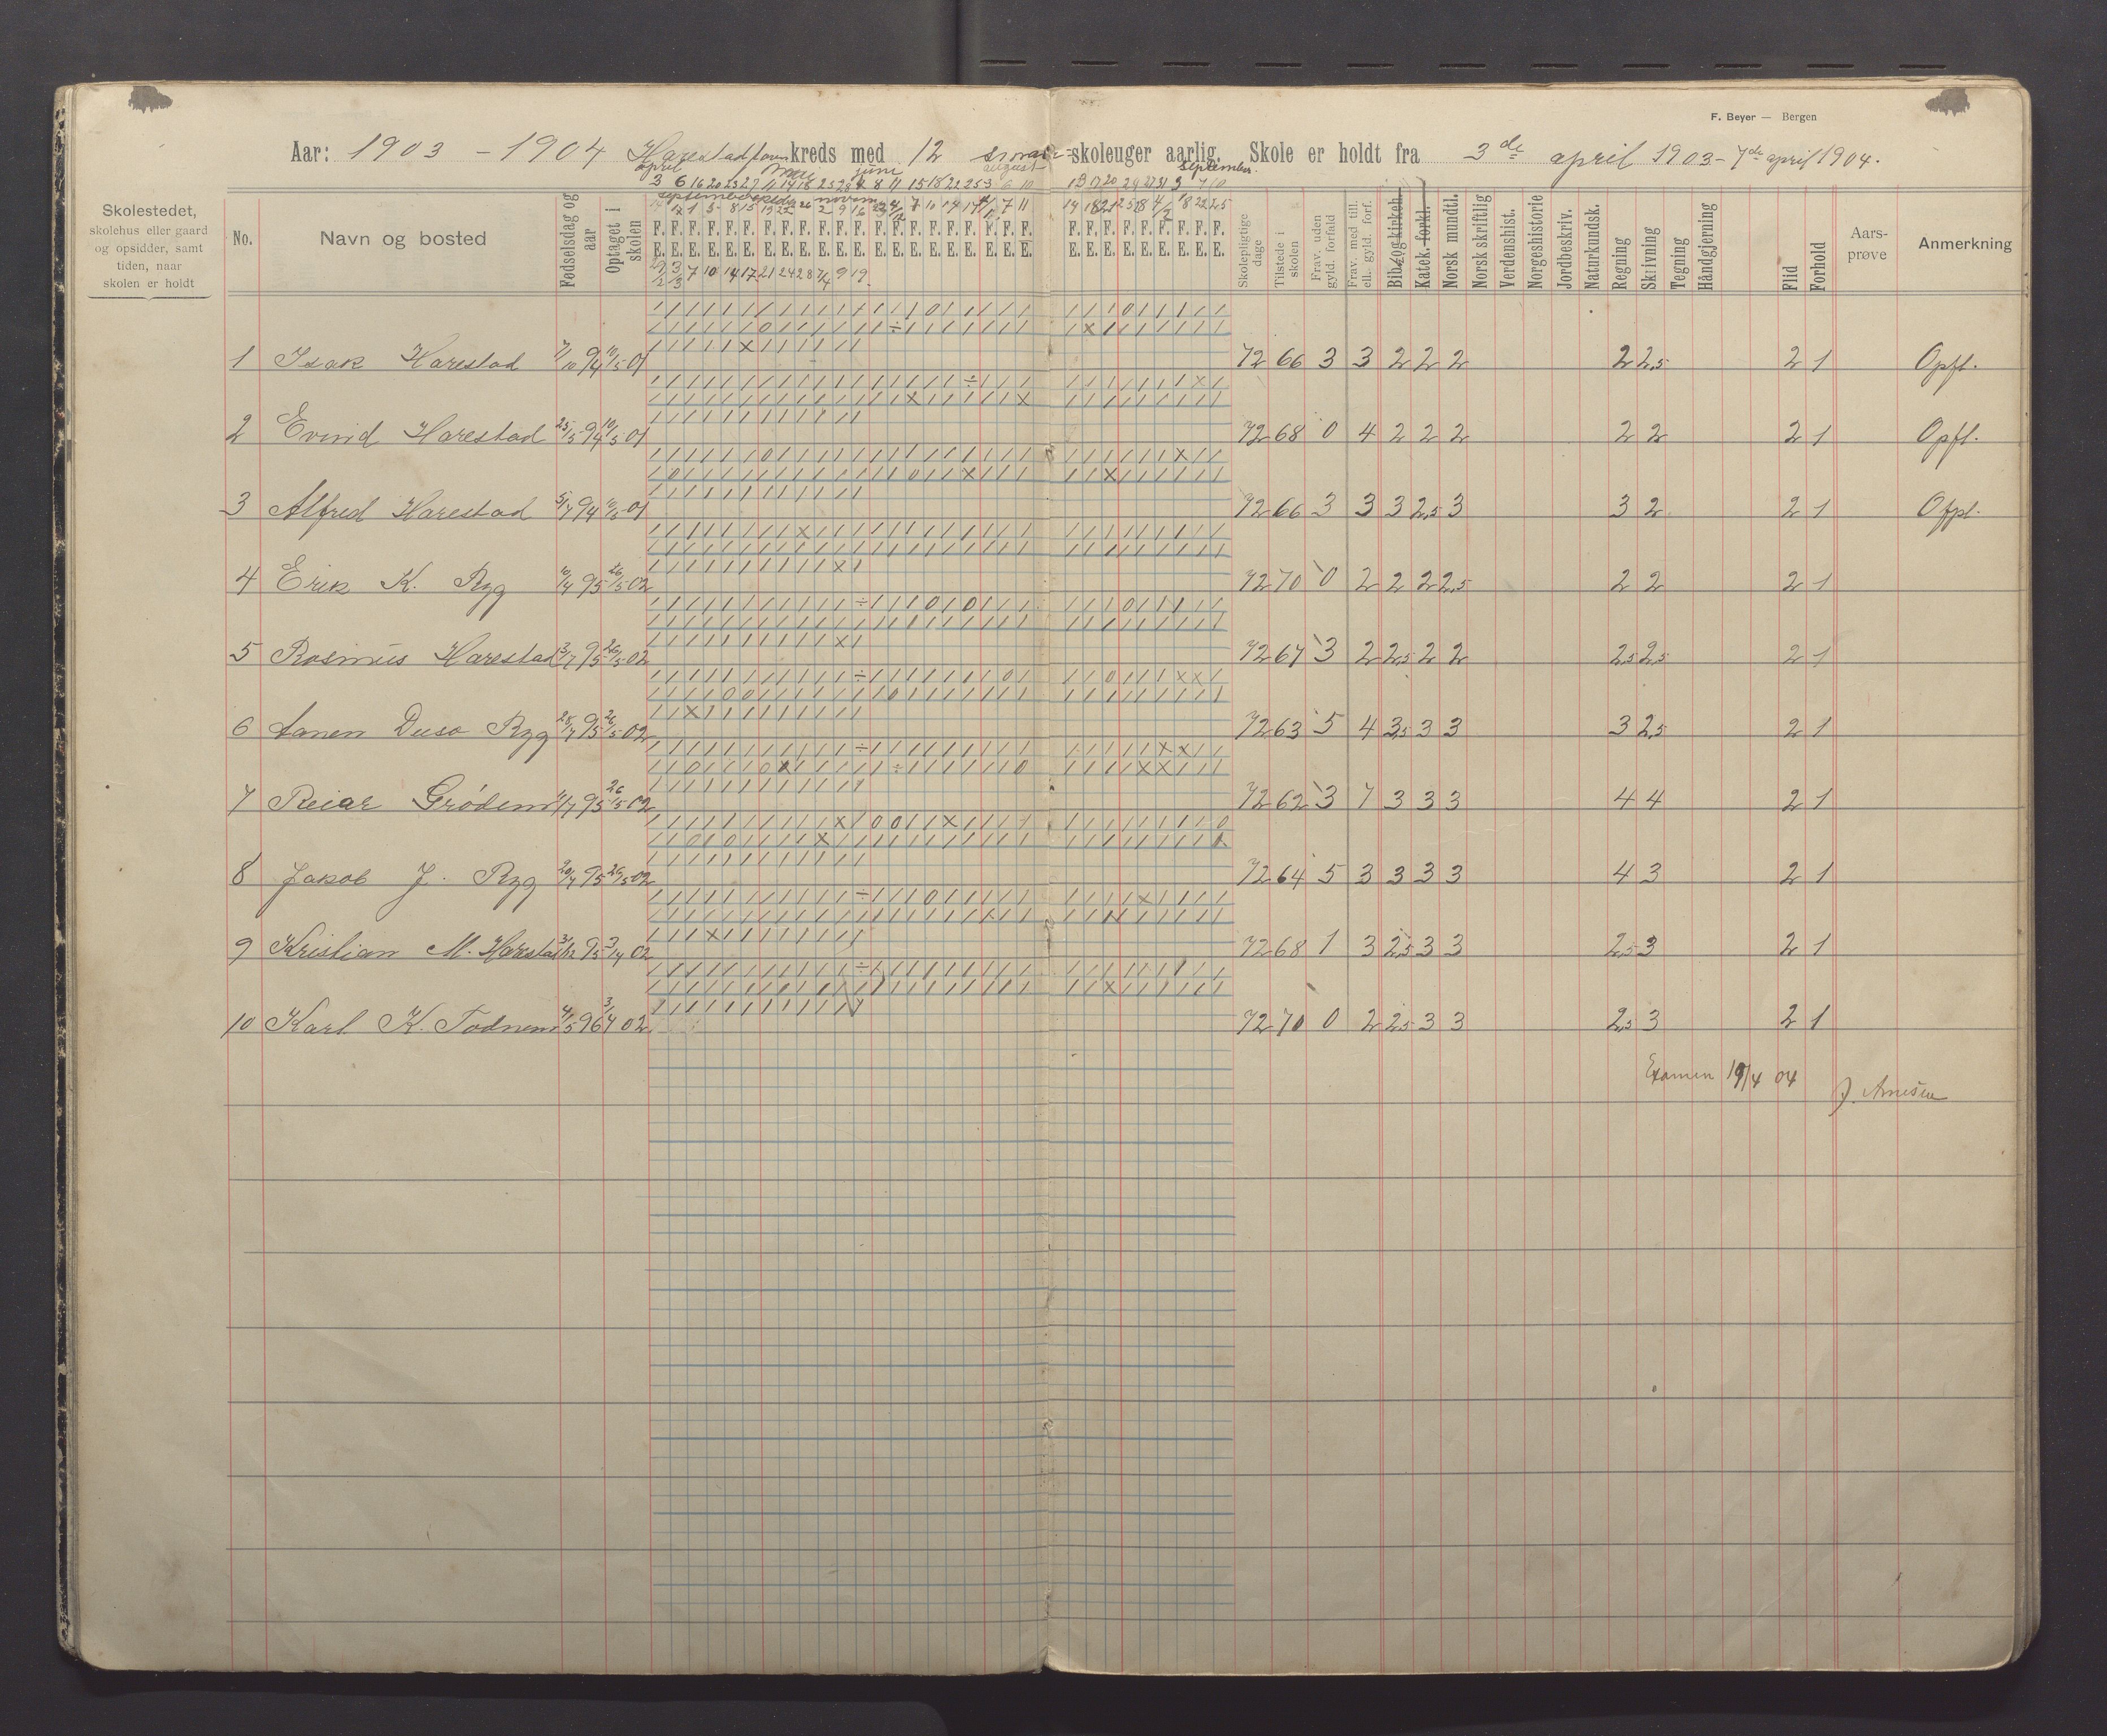 F. Beyer — Bergen
Aar: 1903 - 1904 Harestad kreds med 12 skoleuger aarlig. Skole er holdt fra 3de april 1903 - 7de april 1904.
april mai juni august september.
3 6 16 20 23 27 11 14 18 25 28 4 8 11 15 18 22 25 3 6 10 13 17 20 24 27 31 3 7 10
Skolestedet,
skolehus eller gaard
og opsidder, samt
tiden, naar
skolen er holdt
No. Navn og bosted Fødselsdag og aar Optaget i skolen
F. F. F. F. F. F. F. F. F. F. F. F. F. F. F. F. F. F. F. F. F. F. F. F. F. F. F. F. F. F.
E. E. E. E. E. E. E. E. E. E. E. E. E. E. E. E. E. E. E. E. E. E. E. E. E. E. E. E. E. E.
29/2 3/3 7 10 14 17 21 24 28 7/4 9 19.
Skolepligtige dage Tilstede i skolen Frav. uden gyld. forfald Frav. med till. ell. gyld. forf. Bib. og kirkeh. Katek. forkl. Norsk mundtl. Norsk skriftlig Verdenshist. Norgeshistorie Jordbeskriv. Naturkundsk. Regning Skrivning Tegning Håndgjerning Flid Forhold Aars-prøve Anmerkning
1 Isak Harestad 7/10 94 10/5 01 72 66 3 3 2 2 2 2 2,5 2 1 Opfl.
2 Evind Harestad 25/5 94 10/5 01 72 68 0 4 2 2 2 2 2 2 1 Opfl.
3 Alfred Harestad 5/7 94 10/5 01 72 66 3 3 3 2,5 3 3 2 2 1 Ofpl.
4 Erik K. Ryg 10/4 95 26/5 02 72 70 0 2 2 2 2,5 2 2 2 1
5 Rasmus Harestad 3/7 95 26/5 02 72 67 3 2 2,5 2 2 2,5 2,5 2 1
6 Aanen Dusa Ryg 28/7 95 26/5 02 72 63 5 4 3,5 3 3 3 2,5 2 1
7 Reiar Grødem 11/7 95 26/5 02 72 62 3 7 3 3 3 4 4 2 1
8 Jakob J. Ryg 20/4 95 26/5 02 72 64 5 3 3 3 3 4 3 2 1
9 Kristian M. Harestad 3/12 95 3/4 02 72 68 1 3 2,5 3 3 2,5 3 2 1
10 Karl K. Todnem 4/5 96 3/4 02 72 70 0 2 2,5 3 3 2,5 3 2 1
Examen 19/4 04
J. Arnesen